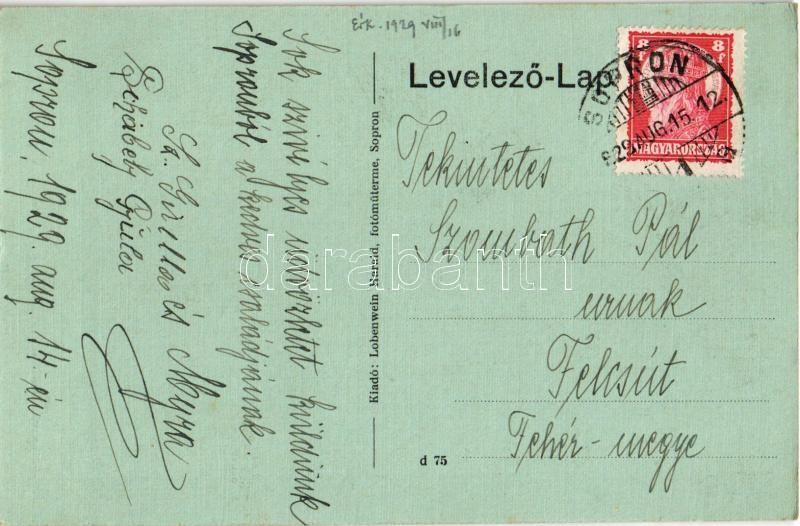 Érk. 1929 VIII/16
Levelező-Lap
8 f 8 f
MAGYARORSZÁG
SOPRON
929 AUG. 15. 12
Tekintetes
Szombath Pál
urnak
Felcsút
Fehér-megye
Kiadó: Lobenwein Harald, fotóműterme, Sopron
d 75
Sok szivélyes üdvözletet küldünk
Sopronból a kedves családjának.
és Myra
Gyula
Sopron, 1929. aug. 14-én
darabanth